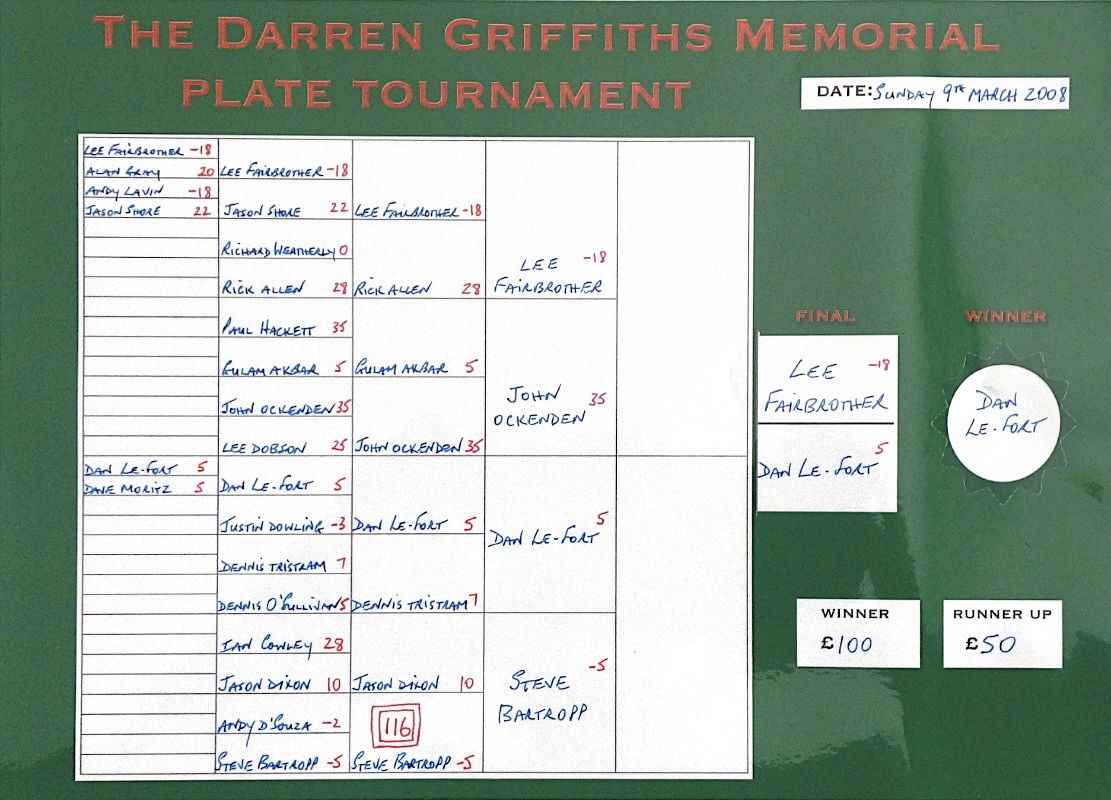 THE DARREN GRIFFITHS MEMORIAL
PLATE TOURNAMENT
DATE: SUNDAY 9TH MARCH 2008
LEE FAIRBROTHER -18
ALAN GRAY 20
ANDY LAVIN -18
JASON SHORE 22
DAN LE-FORT 5
DAVE MORITZ 5
LEE FAIRBROTHER -18
JASON SHORE 22
RICHARD WEATHERLY 0
RICK ALLEN 28
PAUL HACKETT 35
GULAM AKBAR 5
JOHN OCKENDEN 35
LEE DOBSON 25
DAN LE-FORT 5
JUSTIN DOWLING -3
DENNIS TRISTRAM 7
DENNIS O'SULLIVAN 5
IAN COWLEY 28
JASON DIXON 10
ANDY D'SOUZA -2
STEVE BARTROPP -5
LEE FAIRBROTHER -18
RICK ALLEN 28
GULAM AKBAR 5
JOHN OCKENDEN 35
DAN LE-FORT 5
DENNIS TRISTRAM 7
JASON DIXON 10
116
STEVE BARTROPP -5
LEE -18
FAIRBROTHER
JOHN 35
OCKENDEN
5
DAN LE-FORT
STEVE -5
BARTROPP
FINAL
LEE -18
FAIRBROTHER
5
DAN LE-FORT
WINNER
DAN
LE-FORT
WINNER
£100
RUNNER UP
£50